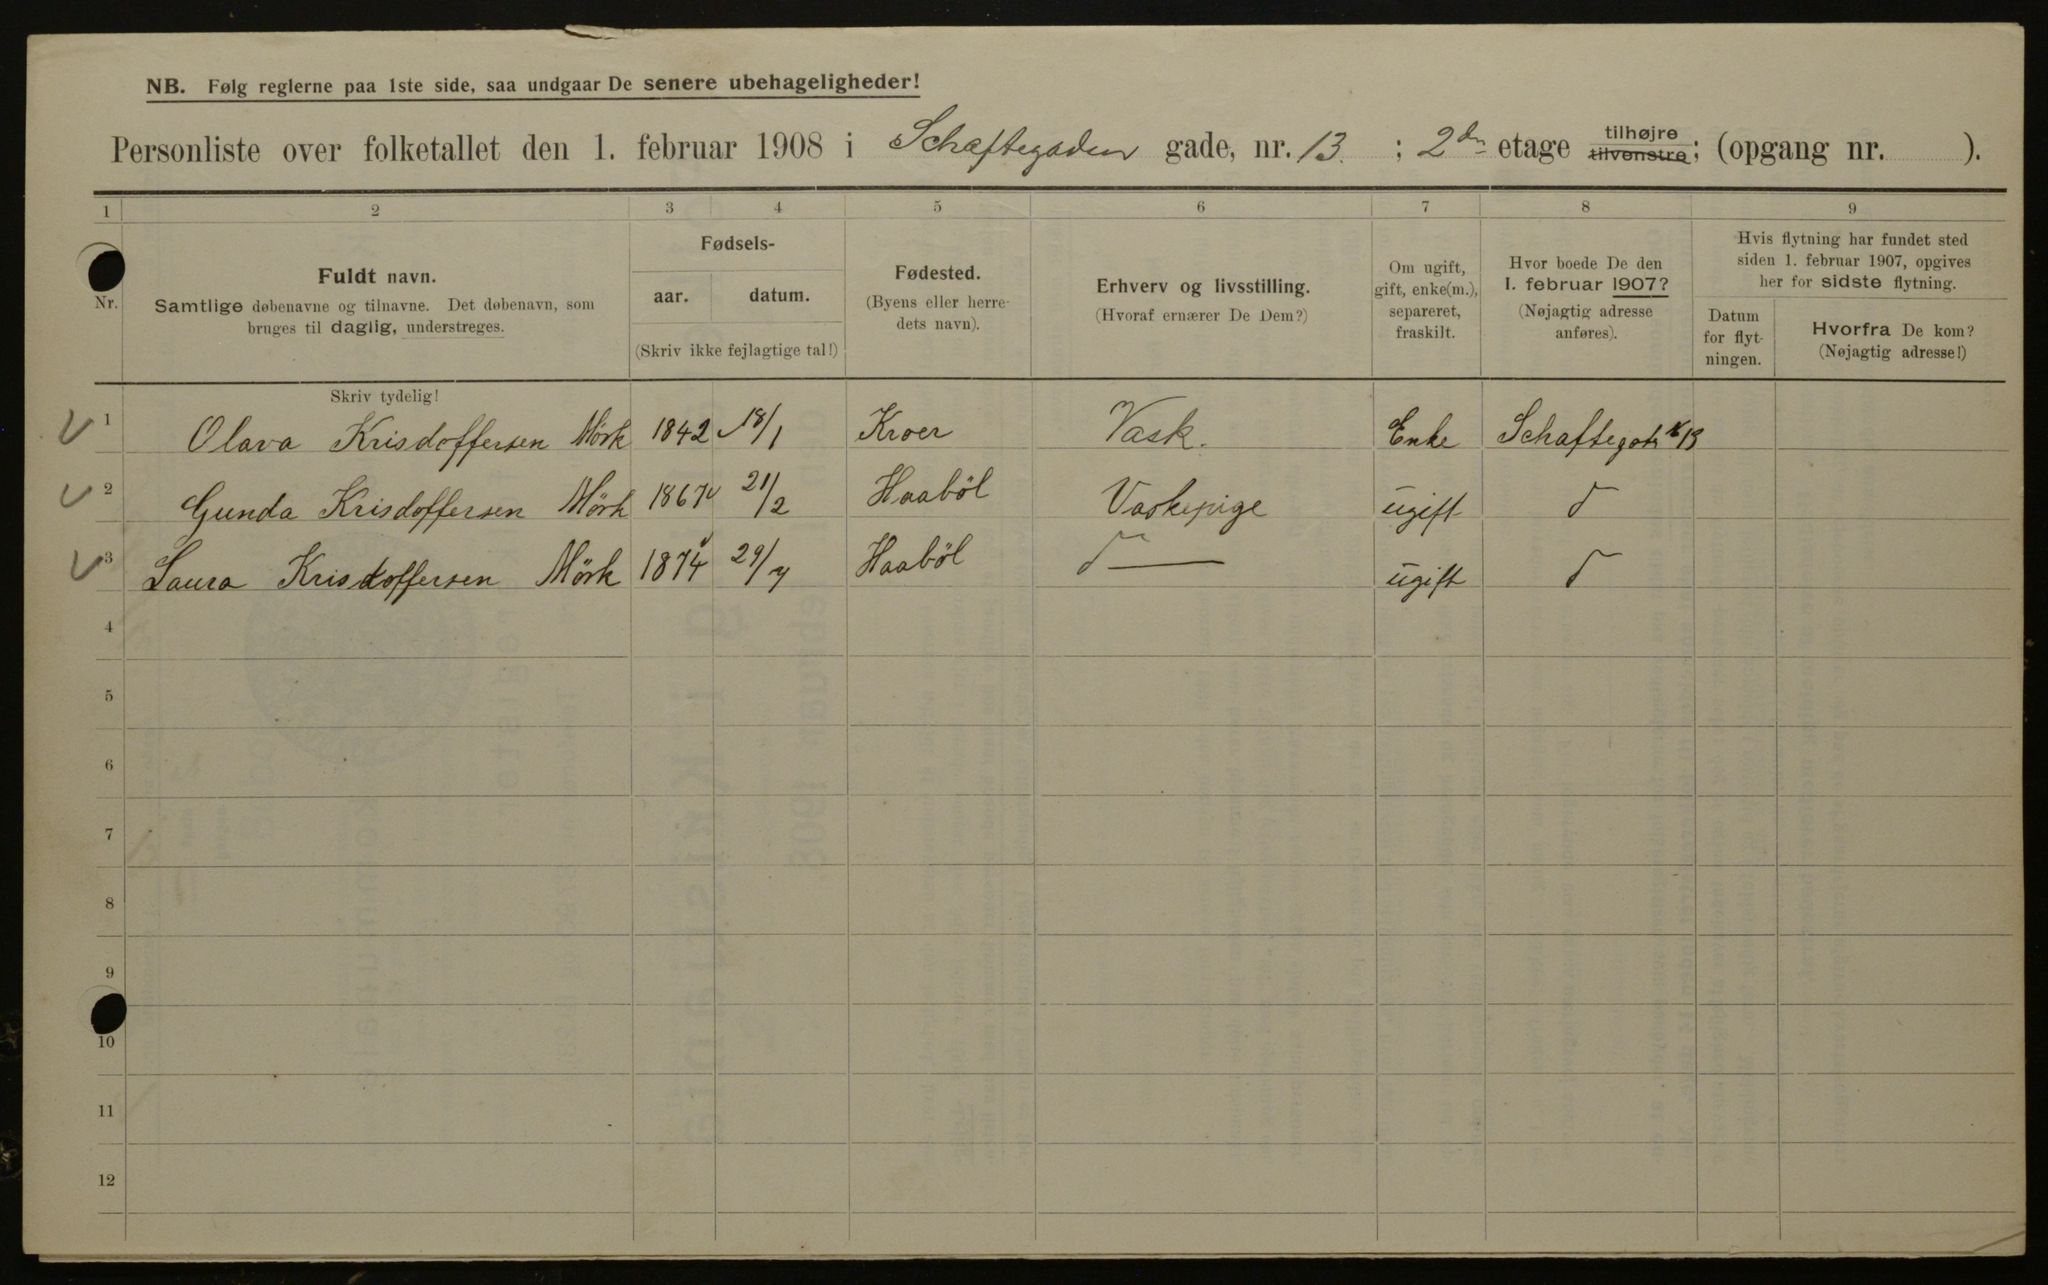 NB. Følg reglerne paa 1ste side, saa undgaar De senere ubehageligheder!
Personliste over folketallet den 1. februar 1908 i Schaftegaden gade, nr. 13. ; 2den etage tilhøjre tilvenstre; (opgang nr. ).
1 2 3 4 5 6 7 8 9
Nr. Fuldt navn. Samtlige døbenavne og tilnavne. Det døbenavn, som bruges til daglig, understreges.
Fødsels- aar. datum. (Skriv ikke fejlagtige tal!)
Fødested. (Byens eller herredets navn).
Erhverv og livsstilling. (Hvoraf ernærer De Dem?)
Om ugift, gift, enke(m.), separeret, fraskilt.
Hvor boede De den 1. februar 1907? (Nøjagtig adresse anføres).
Hvis flytning har fundet sted siden 1. februar 1907, opgives her for sidste flytning.
Datum for flytningen.
Hvorfra De kom? (Nøjagtig adresse!)
Skriv tydelig!
1 Olava Krisdoffersen Mörk 1842 18/1 Kroer Vask. Enke Schaftegat. № 13
2 Gunda Krisdoffersen Mörk 1867 21/2 Haaböl Vaskepige ugift d
3 Laura Krisdoffersen Mörk 1874 29/7 Haaböl d — ugift d
4
5
6
7
8
9
10
11
12